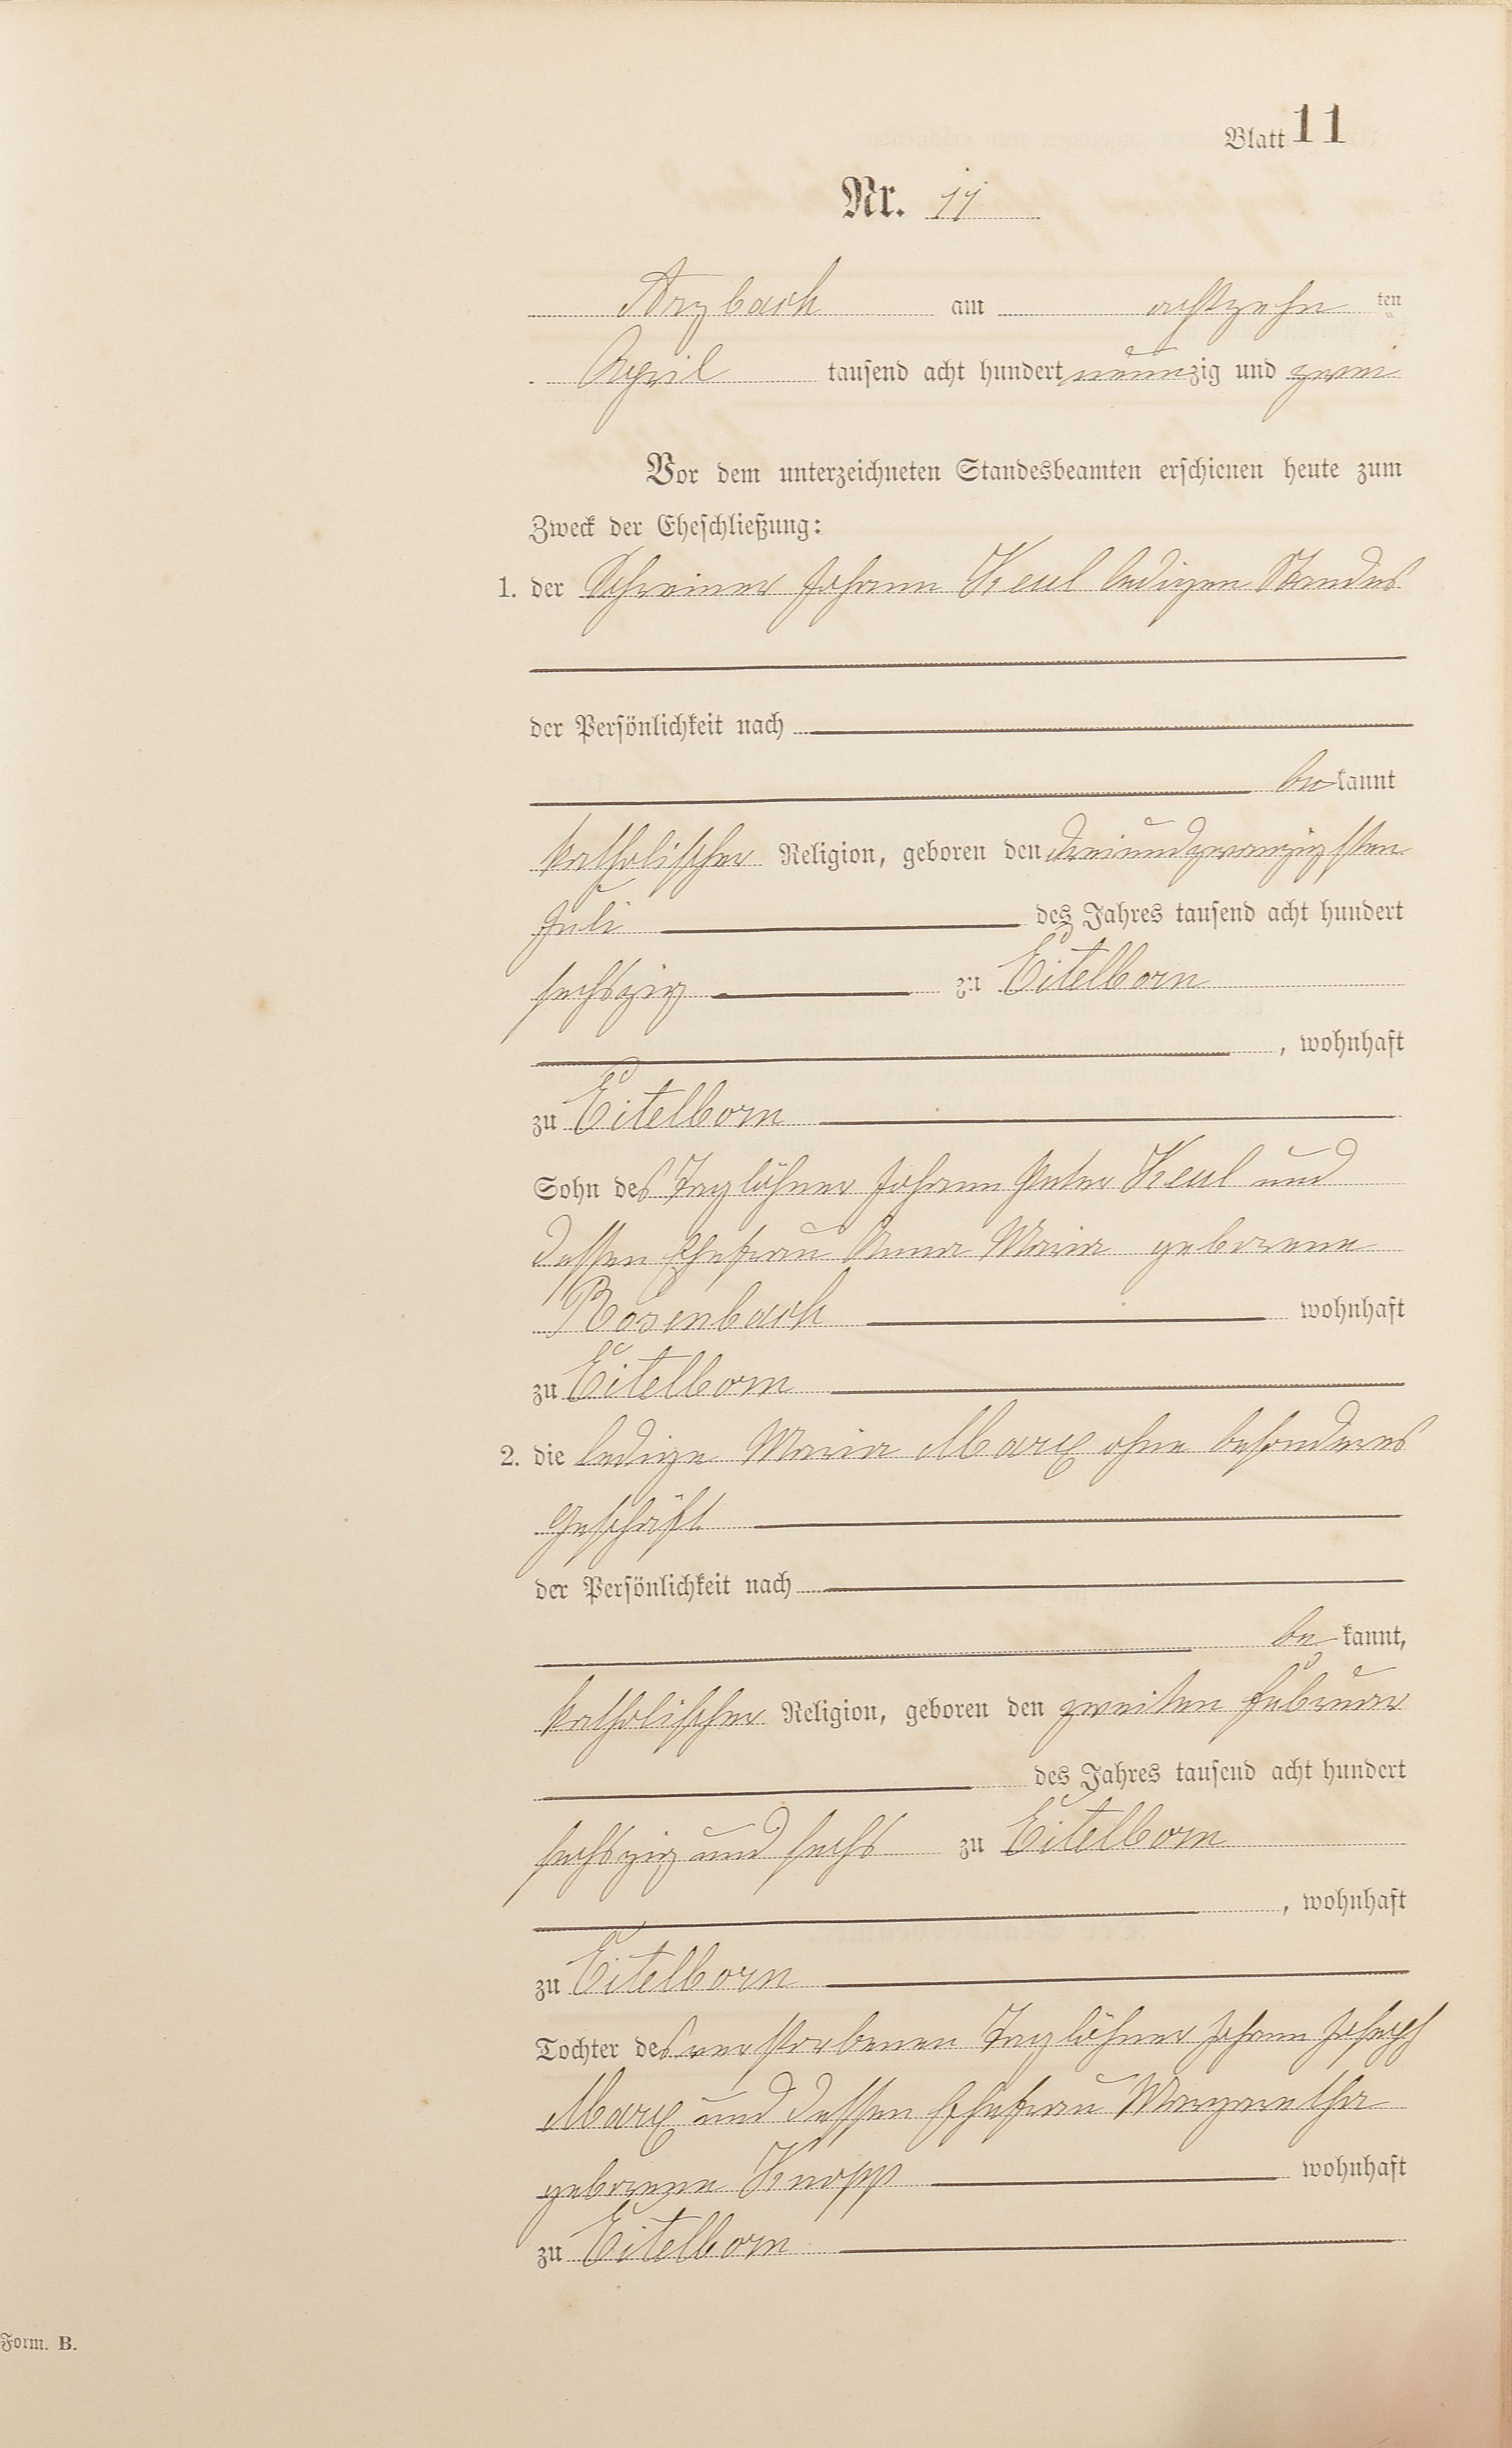 Blatt 11
Nr. 11
Arzbach am achtzehn ten
April tausend acht hundert neunzig und zwei
Vor dem unterzeichneten Standesbeamten erschienen heute zum
Zweck der Eheschließung:
1. der Schreiner Johann Keul ledigen Standes
der Persönlichkeit nach
be kannt
katholischer Religion, geboren den dreiundzwanzigsten
Juli des Jahres tausend acht hundert
sechszig zu Eitelborn
, wohnhaft
zu Eitelborn
Sohn des Taglöhner Johann Peter Keul und
dessen Ehefrau Anna Maria geborene
Rosenbach wohnhaft
zu Eitelborn
2. die ledige Maria Marx ohne besonderes
Geschäft
der Persönlichkeit nach
be kannt,
katholischer Religion, geboren den zweiten Februar
des Jahres tausend acht hundert
sechszig und sechs zu Eitelborn
, wohnhaft
zu Eitelborn
Tochter des verstorbenen Taglöhner Johann Joseph
Marx und dessen Ehefrau Margaretha
geborene Knopp wohnhaft
zu Eitelborn
Form. B.